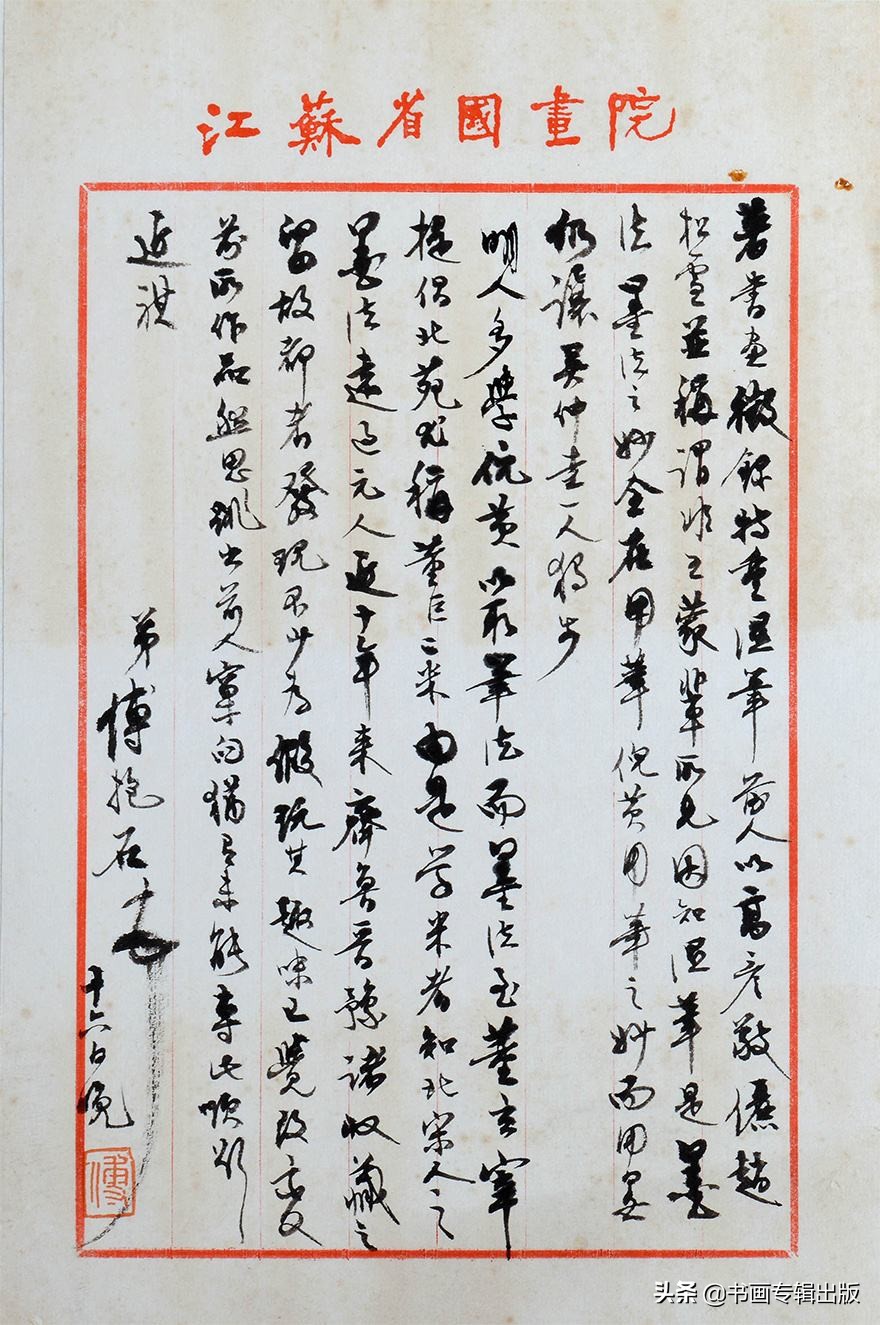 江蘇省國畫院
著書畫徵錄特重溼筆前人以高彥敬儷趙
松雪並稱謂非王蒙輩所見因知溼筆是墨
法墨法之妙全在用筆倪黃用筆之妙而用墨
仍讓吳仲圭一人獨步
明人多學倪黃以取筆法而墨法至董玄宰
提倡北苑尤稱董巨二米由是学米者知北宋人之
墨法遠過元人近十年来齊魯晉豫諸收藏之
留故都者發現不少為假玩其趣味已覺改
前所作品雖思跳出前人窠臼猶有未能專此順頌
近祺
弟傅抱石
十六日晚
傅
头条 @书画专辑出版